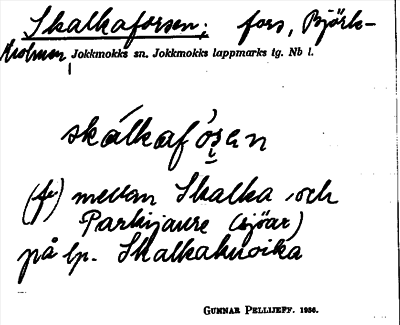 Skalkaforsen; fors, Björk-
holmen Jokkmokks sn. Jokkmokks lappmarks tg. Nb l.
skálkafó̀ṣen
(fr) mellan Skalka och
Parkijaure (sjöar)
på lp. Skalkakuoika
GUNNAR PELLIJEFF. 1956.